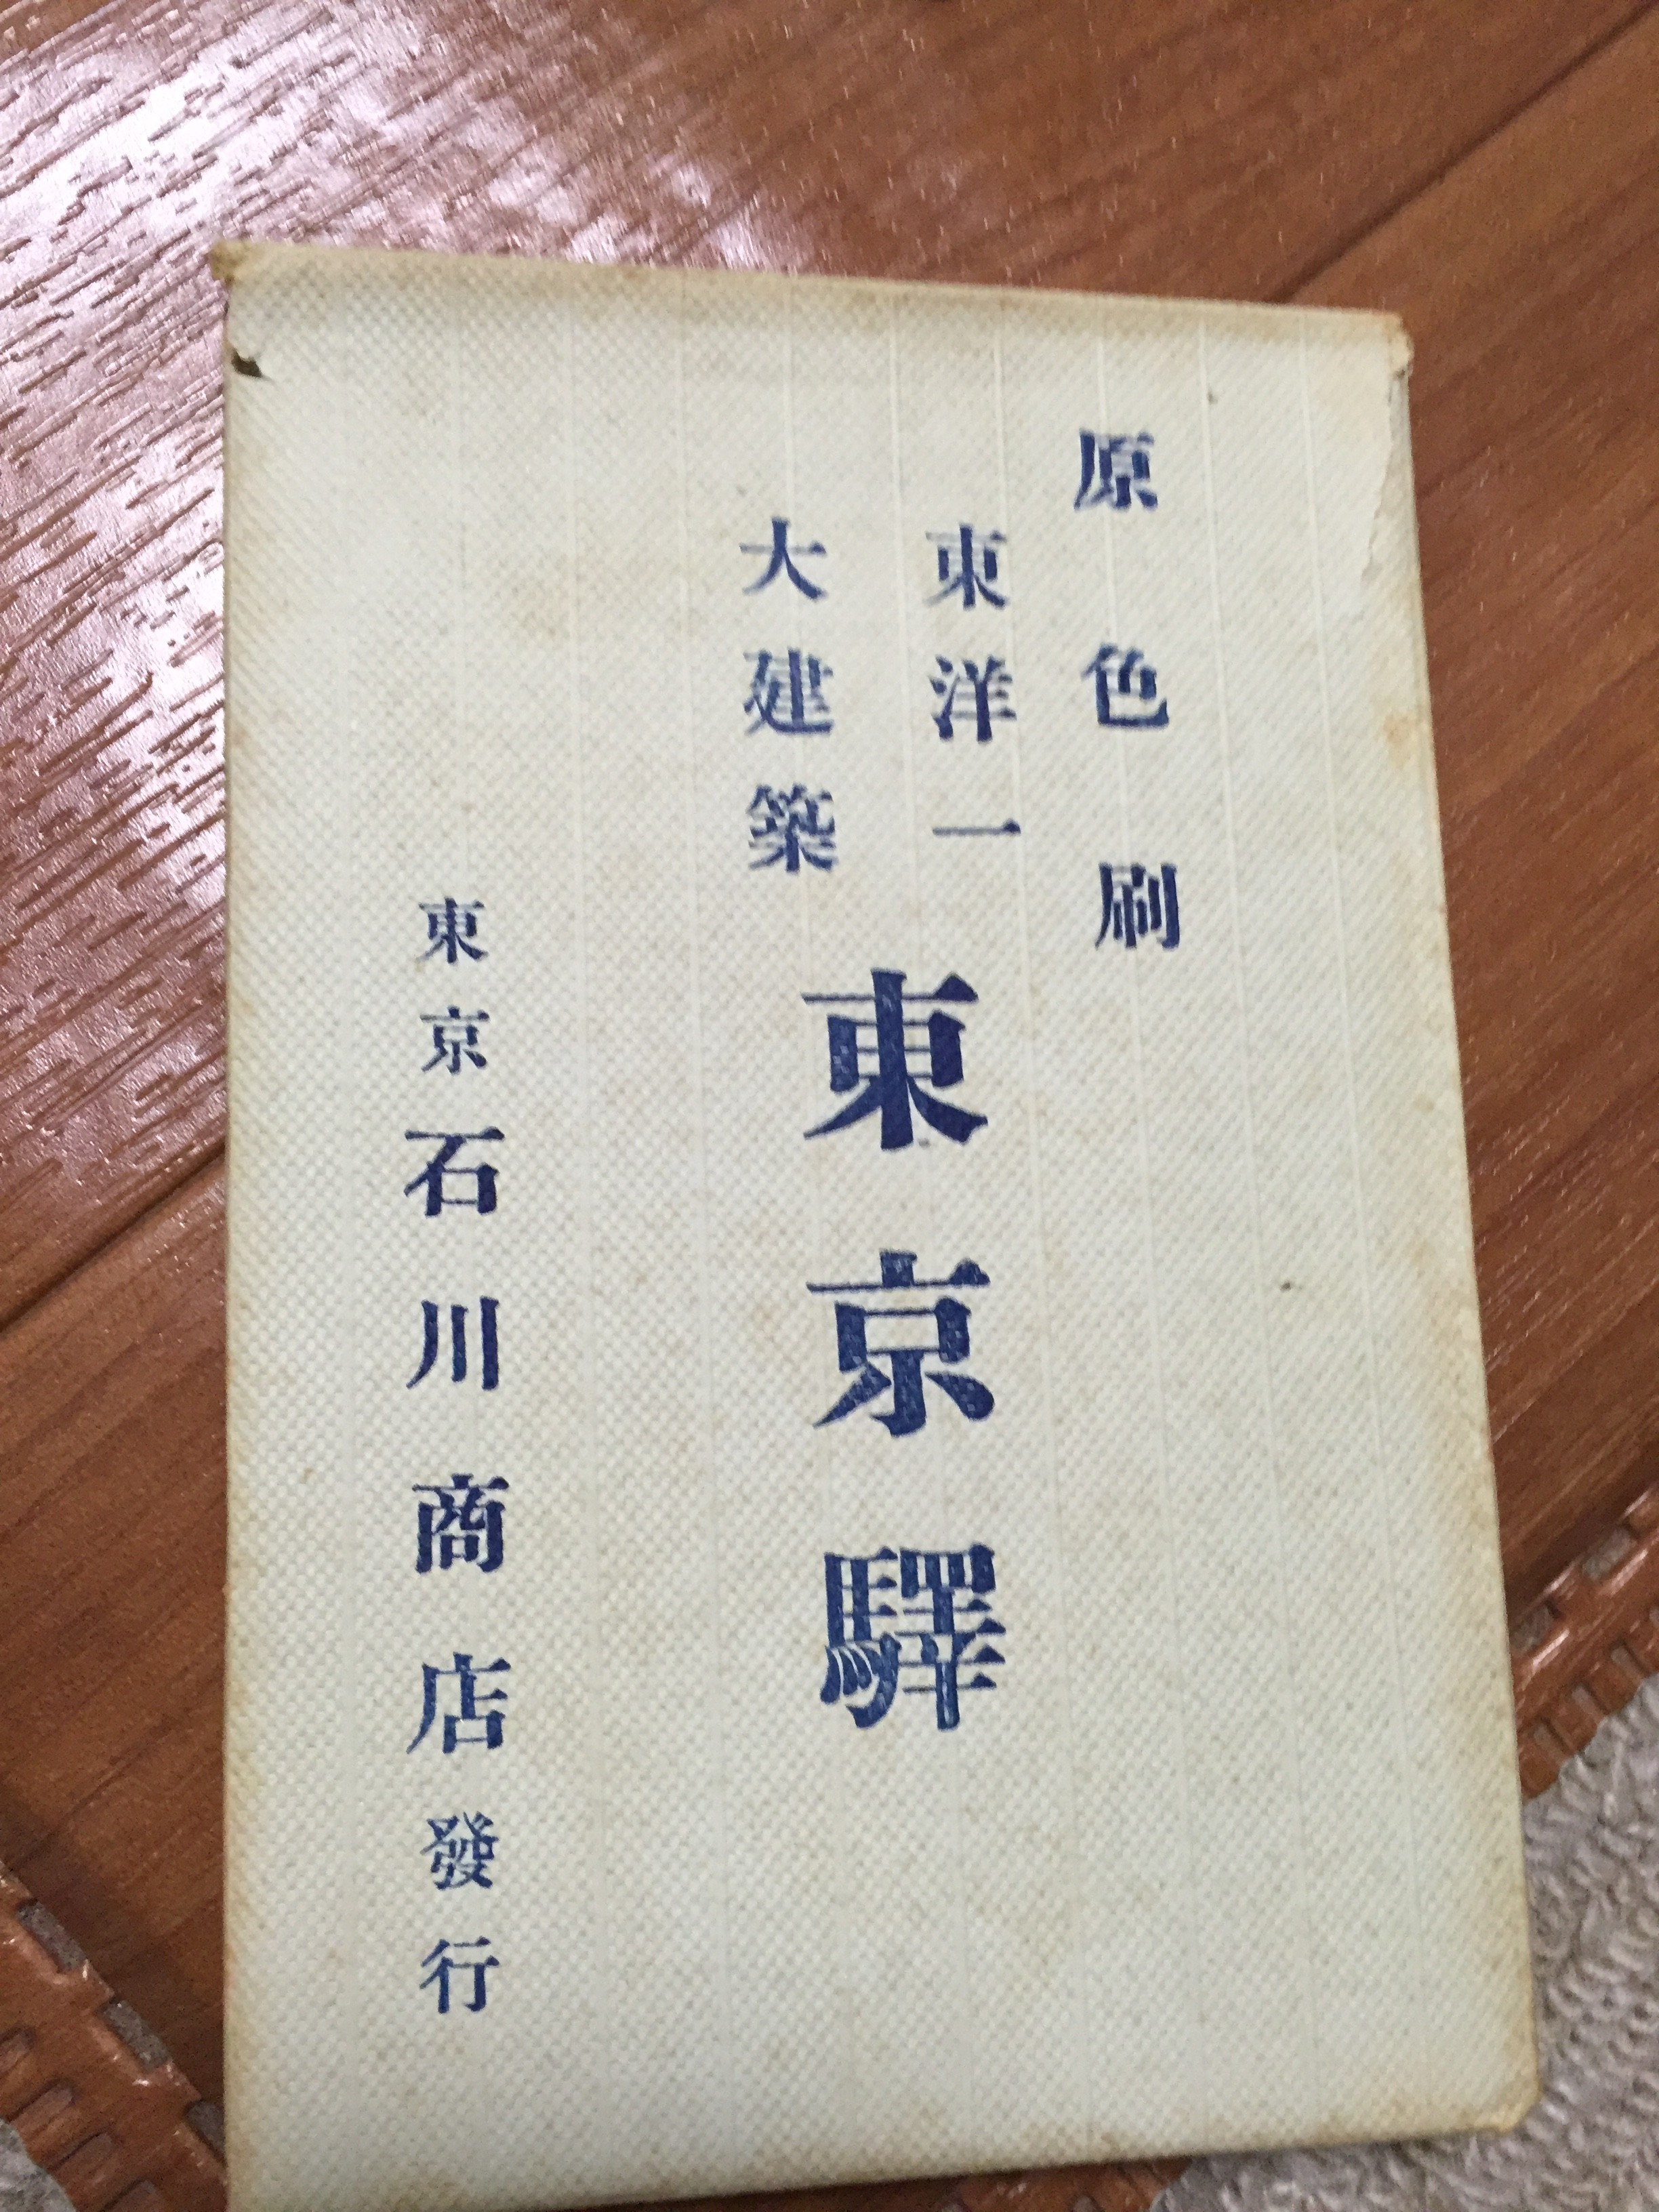 原色刷
東洋一
大建築
東京驛
東京石川商店發行